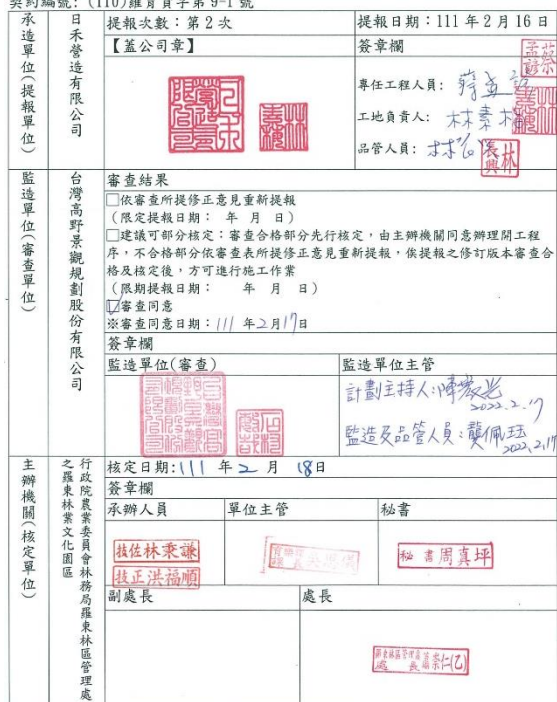 契約編號：(110)羅育員字第9-1號
承造單位(提報單位)
日禾營造有限公司
提報次數：第2次
提報日期：111年2月16日
【蓋公司章】
簽章欄
專任工程人員：
工地負責人：林素梅
品管人員：
監造單位(審查單位)
台灣高野景觀規劃股份有限公司
審查結果
□依審查所提修正意見重新提報
(限定提報日期：　年　月　日)
□建議可部分核定：審查合格部分先行核定，由主辦機關同意辦理開工程
序，不合格部分依審查表所提修正意見重新提報，俟提報之修訂版本審查合
格及核定後，方可進行施工作業
(限期提報日期：　年　月　日)
☑審查同意
※審查同意日期：111年2月17日
簽章欄
監造單位(審查)
監造單位主管
計劃主持人：
2022.2.17
監造及品管人員：龔佩珏
2022.2.17
主辦機關(核定單位)
行政院農業委員會林務局羅東林區管理處
之羅東林業文化園區
核定日期：111年2月18日
簽章欄
承辦人員
單位主管
秘書
技佐林秉謙
技正洪福順
秘書周真坪
副處長
處長
羅東林區管理處
處長